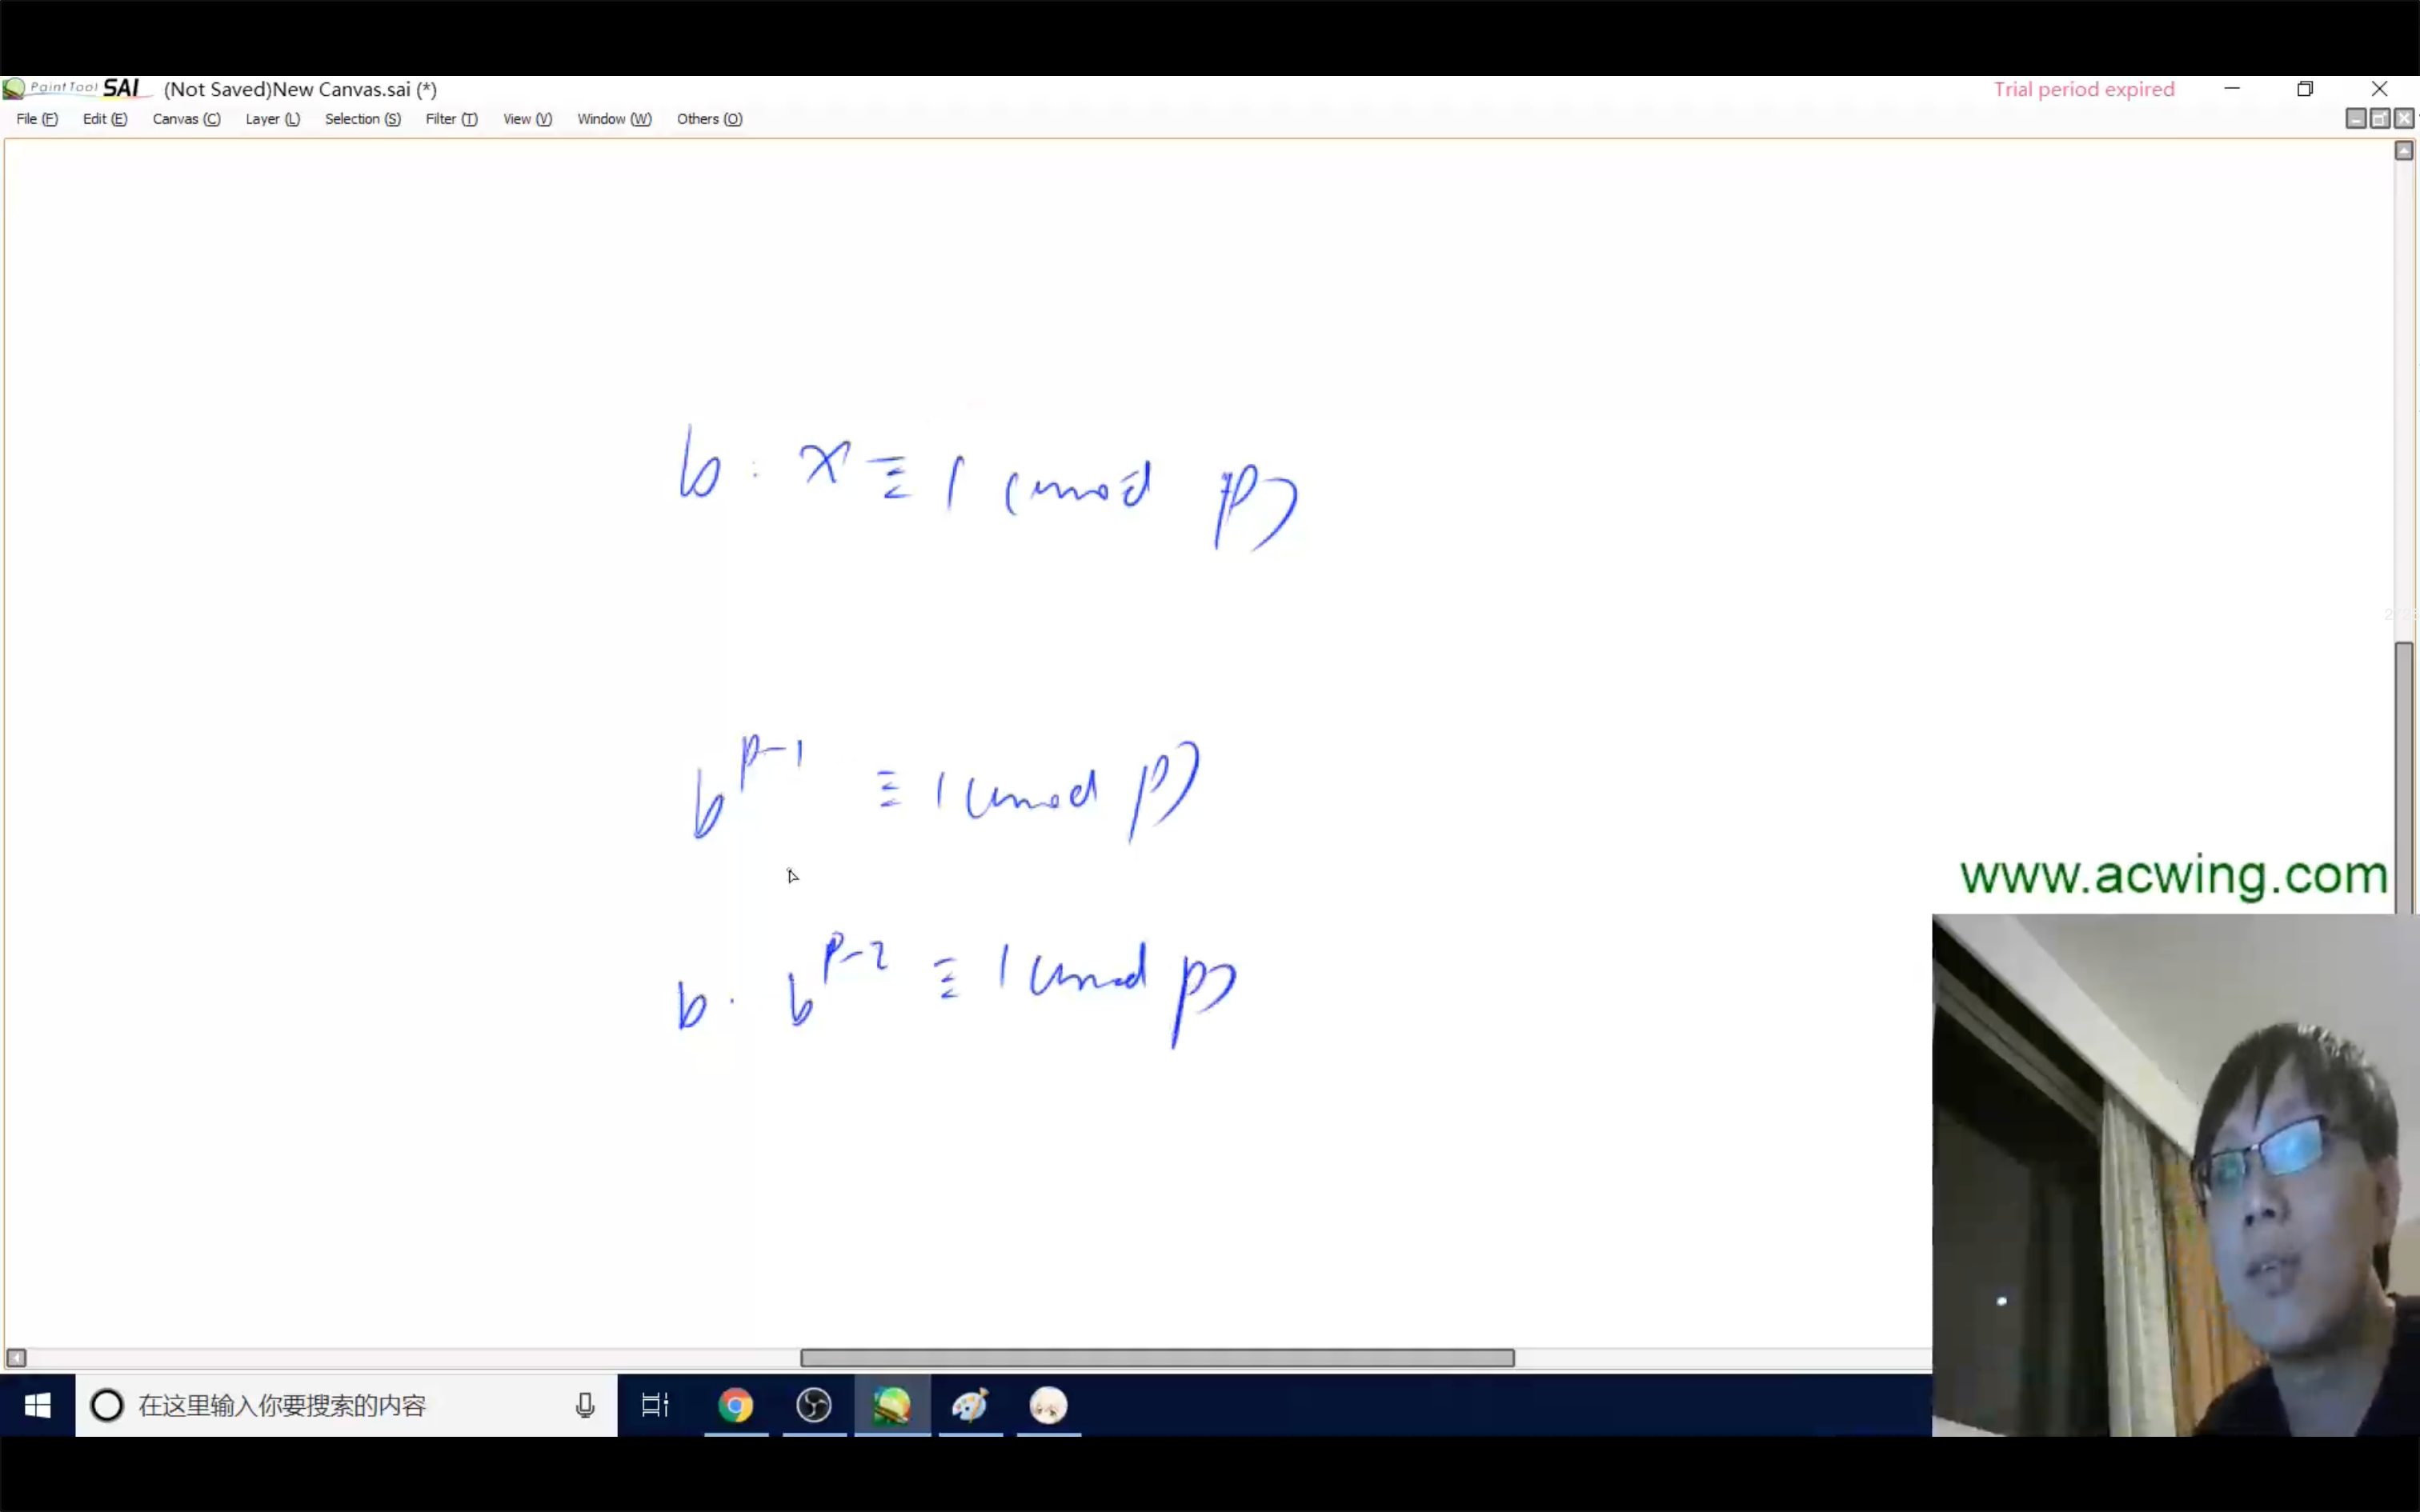 PaintTool SAI (Not Saved)New Canvas.sai (*) Trial period expired
File (F) Edit (E) Canvas (C) Layer (L) Selection (S) Filter (T) View (V) Window (W) Others (O)
b · x ≡ 1 (mod p)
b^{p-1} ≡ 1 (mod p)
www.acwing.com
b · b^{p-2} ≡ 1 (mod p)
在这里输入你要搜索的内容